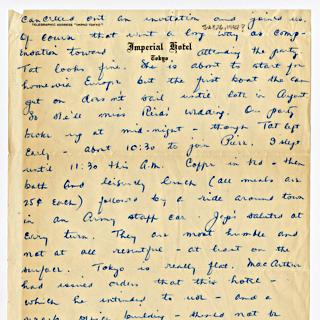 cancelled out an invitation and joined us.
TELEGRAPHIC ADDRESS "IMPHO TOKYO"
Of course that went a long way as comp-
Imperial Hotel
Tokyo
ensation toward attending the party.
Tat looks fine. She is about to start for
home via Europe but the first boat she can
get on doesn't sail until late in August
So she'll miss Reid's wedding. Our party
broke up at mid-night - though Tat left
early - about 10:30 to join Pierr. I slept
until 11:30 this A.M. Coffee in bed - then
bath and leisurely lunch (all meals are
25¢ each) followed by a ride around town
in an Army staff car. Jap's saluted at
every turn. They are most humble and
not at all resentful - at least on the
surface. Tokyo is really flat. MacArthur
had issued orders that this hotel -
which he intended to use - and a
office building - should not be